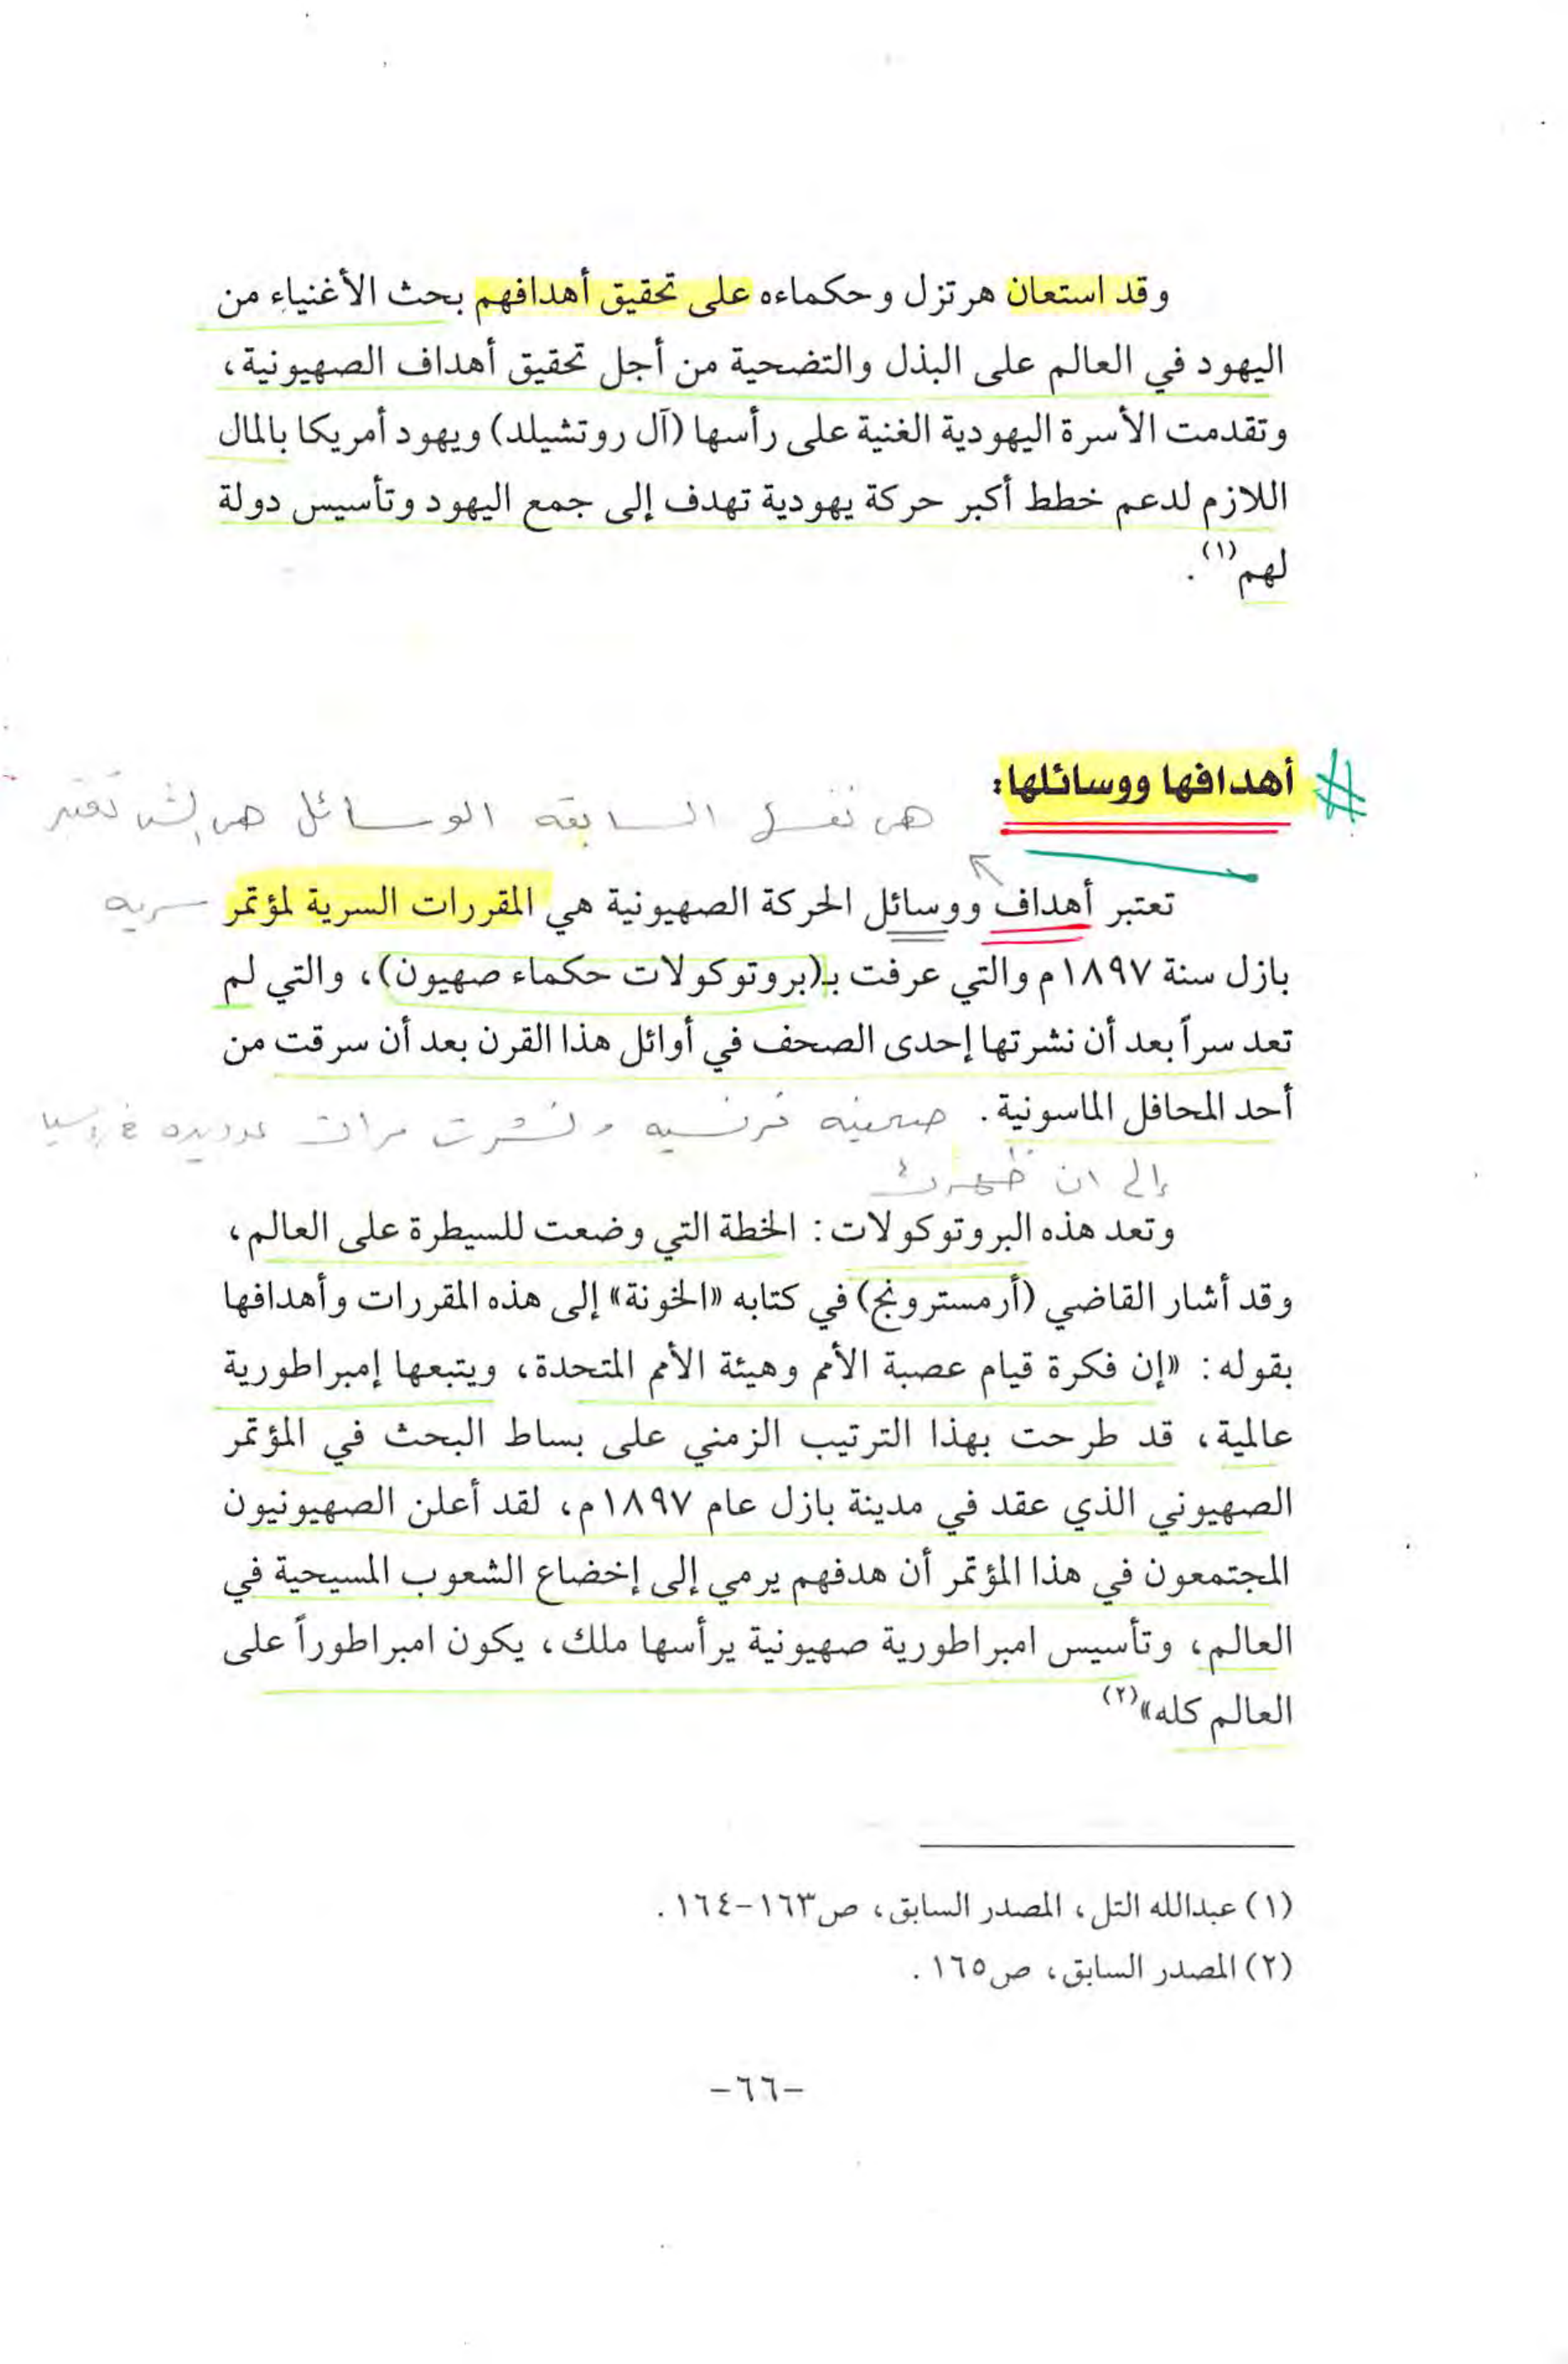 وقد استعان هرتزل وحكماءه على تحقيق أهدافهم بحث الأغنياء من
اليهود في العالم على البذل والتضحية من أجل تحقيق أهداف الصهيونية،
وتقدمت الأسرة اليهودية الغنية على رأسها (آل روتشيلد) ويهود أمريكا بالمال
اللازم لدعم خطط أكبر حركة يهودية تهدف إلى جمع اليهود وتأسيس دولة
لهم(١).
# أهدافها ووسائلها:
هي نفس السابقه الوسائل هي التي تعتبر
تعتبر أهداف ووسائل الحركة الصهيونية هي المقررات السرية لمؤتمر
سريه
بازل سنة ١٨٩٧م والتي عرفت بـ(بروتوكولات حكماء صهيون)، والتي لم
تعد سراً بعد أن نشرتها إحدى الصحف في أوائل هذا القرن بعد أن سرقت من
أحد المحافل الماسونية.
صحيفه فرنسيه ونشرت مرات عديده في روسيا
إلى ان ظهرت
وتعد هذه البروتوكولات: الخطة التي وضعت للسيطرة على العالم،
وقد أشار القاضي (أرمسترونج) في كتابه «الخونة» إلى هذه المقررات وأهدافها
بقوله: «إن فكرة قيام عصبة الأمم وهيئة الأمم المتحدة، ويتبعها إمبراطورية
عالمية، قد طرحت بهذا الترتيب الزمني على بساط البحث في المؤتمر
الصهيوني الذي عقد في مدينة بازل عام ١٨٩٧م، لقد أعلن الصهيونيون
المجتمعون في هذا المؤتمر أن هدفهم يرمي إلى إخضاع الشعوب المسيحية في
العالم، وتأسيس امبراطورية صهيونية يرأسها ملك، يكون امبراطوراً على
العالم كله»(٢)
(١) عبدالله التل، المصدر السابق، ص١٦٣-١٦٤.
(٢) المصدر السابق، ص١٦٥.
-٦٦-